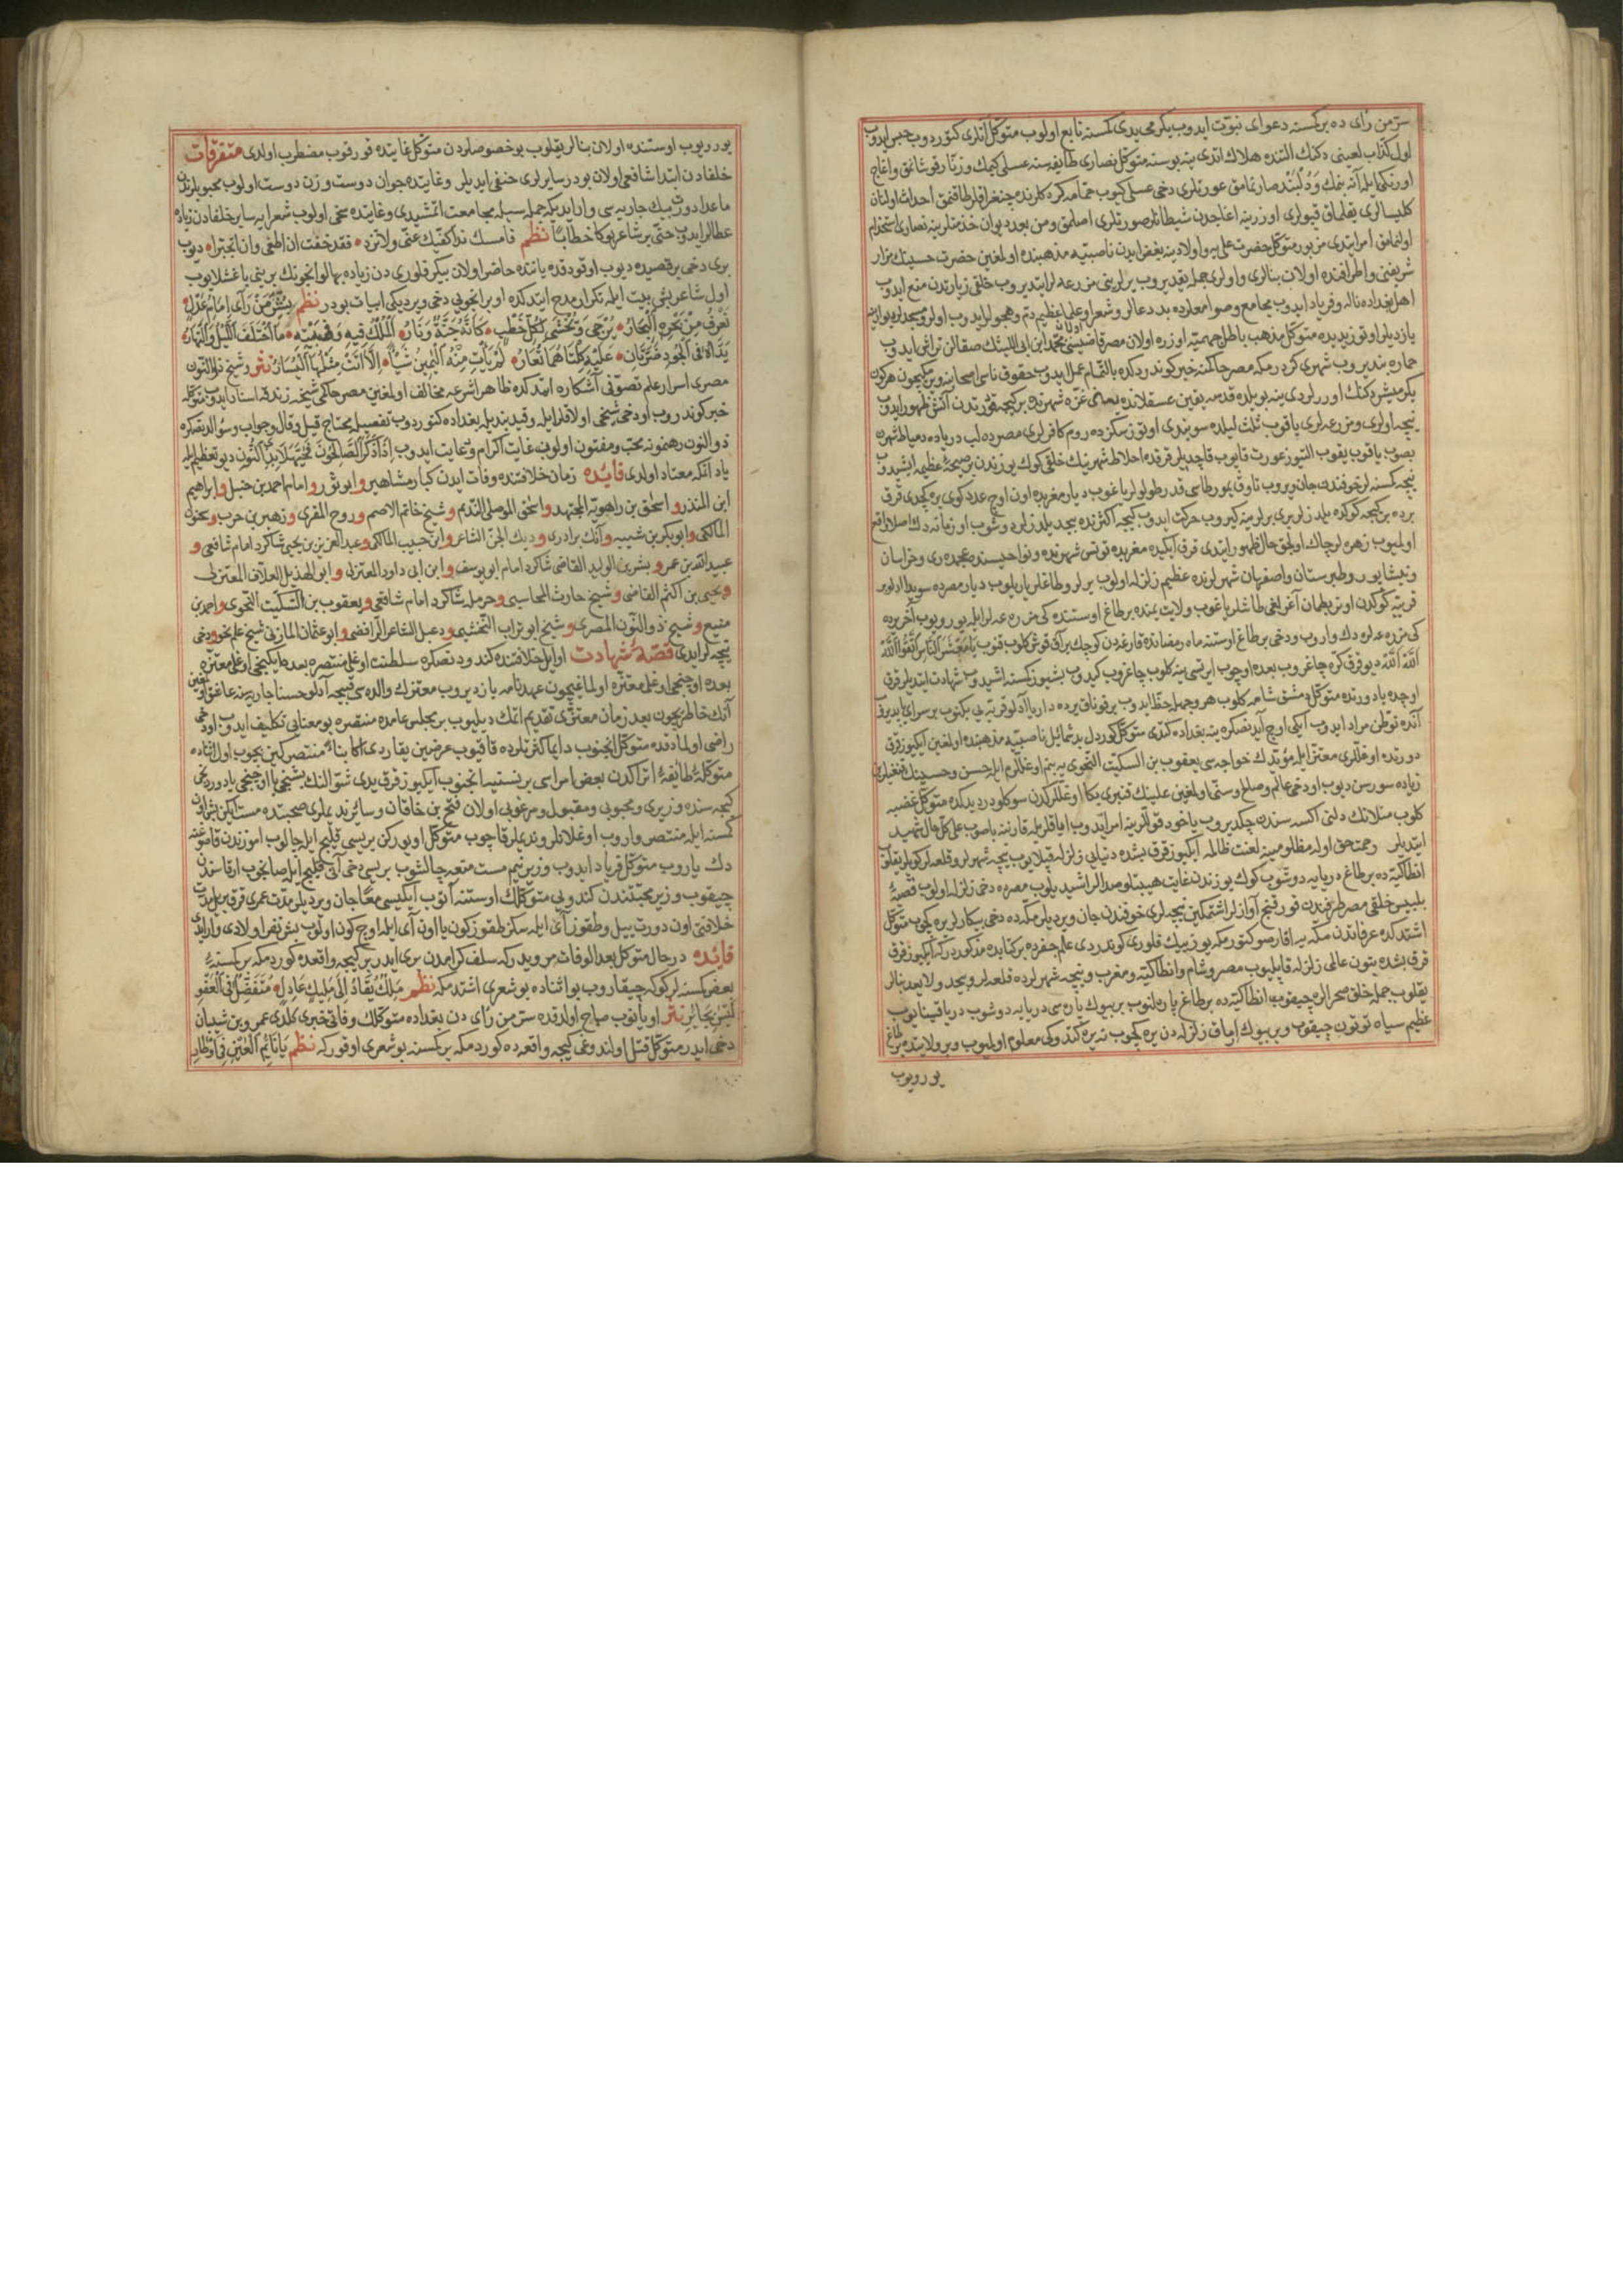 سرّ من رأی ده بر کمسنه دعوای نبوّت ایدوب یکرمی یدی کمسنه تابع اولوب متوکل انلری کتوردوب حبس ایدوب
اول کذّاب لعینی دکنك التنده هلاك اتدی ینه بو سنه متوکل نصاری طایفه سنه عسلی کیمك و زنّار قوشانمق و اغاج
اوزنکی ایله آته بنمك و دلبند صارنمامق عورتلری دخی عسلی کیوب حمّامه کرد کلرنده چنغراقلر طاقنمق احداث اولنان
کلیسالری یقلمق قپولری اوزرینه اغاجدن شیطانلر صورتلری اصلمق و من بعد دیوان خذمتلرینه نصاری استخدام
اولنمامق امر ایتدی مزبور متوکل حضرت علی یه و اولادینه بغض ایدن ناصبیّه مذهبنده اولمغین حضرت حسینك مزار
شریفنی و اطرافنده اولان بنالری و اولری جمله یقدیروب یرلرینی مزرعه لر ایتدیروب خلقی زیارتدن منع ایدوب
اهل بغداده ناله و فریاد ایدوب جامع و صوامعلرده بد دعالر و شعرا و علما عظیم ذم و هجولر ایدوب اولر و مسجدلر دیوارینه
یازدیلر اوتوز یدیده متوکل مذهب باطل جهمیّه اوزره اولان مصر قاضیسی محمد ابن ابی اللیثك صقالن تراش ایدوب
حماره بندیروب شهری کزدرمکه مصر حاکمنه خبر کوندردکده بالتمام عمل ایدوب حقوق ناسی اصحابنه ویرمکیچون هر کون
یکرمیشر دکنك اوررلردی ینه بو یلده قدسه یقین عسقلانده یعنی غزّه شهرنده بر کیجه قدرتدن آتش ظهور ایدوب
نیجه اولری و مزرعه لری یاقوب ثلث لیلده سویندی اوتوز سکزده روم کافرلری مصره کلوب دریاده دمیاط شهرن
بصوب یاقوب یقوب التیوز عورت قاپوب قاچدیلر قرقده اخلاط شهرینك خلقی کوك یوزندن بر صیحهٔ عظیمه ایشیدوب
نیجه کمسنه لر خوفندن جان ویروب تاوق یمورطاسی قدر طولولر یاغوب دیار مغربده اون اوچ عدد کوی یره کچدی قرق
برده بر کیجه کوکده یلدزلر بری برلرینه کیروب حرکت ایدوب کیجه اکثرنده بیحد یلدزلر دوشوب او زمانه دك اصلا واقع
اولمیوب زهره لر چاك اولیجق حال ظهور ایتدی قرق ایکیده مغربده تونس شهرنده و نواحیسنده و عجمده ری و خراسان
و نیشابور و طبرستان و اصفهان شهرلرنده عظیم زلزله اولوب یرلر و طاغلر یاریلوب دیار مصرده سویدا دیرلر بر
قریه یه کوکدن اونر بطمان آغرلغی طاشلر یاغوب ولایت یمنده بر طاغ اوستنده کی مزرعه لر ایله یوریوب آخر یرده
کی مزرعه لره دك واروب و دخی بر طاغ اوستنه ماه رمضانده قارغه دن کوچك بر آق قوش کلوب قنوب یَا مَعْشَرَ النَّاسِ اتَّقُوا اللهَ
اللهَ اللهَ دیو قرق کره چاغروب بعده اوچوب ایرتسی ینه کلوب چاغروب کیدوب بشیوز کمسنه اشیدوب شهادت ایتدیلر قرق
اوچده یا دورتده متوکل دمشق شامه کلوب هر وجهله حظ ایدوب بر قوناق یرده داریا آدلو قریه یی بکنوب بر سرای یاپدیروب
آنده توطن مراد ایدوب ایکی اوچ آیدنصکره ینه بغداده کتدی متوکل کوردل بد شمائیل ناصبیّه مذهبنده اولمغین ایکیوز قرق
دورتده اوغللری معتز ایله مؤیّدك خواجه سی یعقوب بن السکّیت النحوی یه بنم اوغللرم ایله حسن و حسینك قنغیلرین
زیاده سورسن دیوب او دخی عالم و صالح و سنّی اولمغین علینك قنبری بکا اوغللرکدن سوکلودر دیدکده متوکل غضبه
کلوب مسلانك دلنی اکسه سندن چکدیروب یاخود قوللرینه امر ایدوب ایاقلریله قارننه باصوب علی کل حال شهید
ایتدیلر رحمت حق اوله مظلومینه لعنت ظالمه ایکیوز قرق بشده دنیایی زلزله قپلایوب نیجه شهرلر و قلعه لر کویلر یقلوب
انطاکیّه ده بر طاغ دریایه دوشوب کوك یوزندن غایت هیبتلو صدالر اشیدیلوب مصره ده دخی زلزله اولوب قصبهٔ
بلبیس خلقی مصر طرفندن قورقنج آوازلر اشتمکین نیجه لری خوفندن جان ویردیلر مکه ده دخی بیکارلر یره کچوب متوکل
اشتدکده عرفاتدن مکه یه اقارصو کتورمکه یوز بیك فلوری کوندردی علم جفرده بر کتابده مذکوردرکه ایکیوز قرق
قرق بشده بتون عالمی زلزله قاپلیوب مصر و شام و انطاکیّه و مغرب و نیجه شهرلرده قلعه لر و بیحد و لا یعد بنالر
یقلوب جمله خلق صحرالره چیقوب انطاکیّه ده بر طاغ پاره لنوب بر بیوك پاره سی دریایه دوشوب دریا قینایوب
عظیم سیاه توتون چیقوب و بر بیوك ایرماق زلزله دن یره کچوب نه یره کتدوکی معلوم اولمیوب و بر ولایتده بر طاغ
یوریوب
یوریوب اوستنده اولان بنالر یقلوب بو خصوصلردن متوکل غایتده قورقوب مضطرب اولدی متفرقات
خلفادن ابتدا شافعی اولان بودر سایرلری حنفی ایدیلر و غایتده جوان دوست و زن دوست اولوب محبوبلرندن
ماعدا دورت بیك جاریه سی وار ایدیکه جمله سیله مجامعت اتمشیدی و غایتده سخی اولوب شعرایه سایر خلفادن زیاده
عطالر ایدوب حتی بر شاعر بوکا خطاباً نظم فامسك ندا کفّیك عنّی ولا تزد • فقد خفت ان اطغی وان اتجبّرا • دیوب
بری دخی بر قصیده دیوب اوقودقده یاننده حاضر اولان بیکر فلوری دن زیاده بهالو انجونك برینی باغشلایوب
اول شاعر بش بیت ایله تکرار مدح ایتدکده او بر انجویی دخی ویردیکی ابیات بودر نظم بِسُرَّ مَنْ رَأَی إِمَامُ عَدْلٍ •
تَغْرِفُ مِنْ بَحْرِهِ الْبِحَارُ • یُرْجَی وَیُخْشَی لِکُلِّ خَطْبٍ • کَأَنَّهُ جَنَّةٌ وَنَارُ • الْمُلْكُ فِیهِ وَفِی بَنِیهِ • مَا اخْتَلَفَ اللَّیْلُ وَالنَّهَارُ •
یَدَاهُ فِی الْجُودِ ضَرَّتَانِ • عَلَیْهِ کِلْتَاهُمَا تَغَارُ • لَمْ یَأْتِ مِنْهُ الْیَمِینُ شَیْأً • إِلَّا أَتَتْ مِثْلَهَا الْیَسَارُ نثر و شیخ ذو النّون
مصری اسرار علم تصوّفی آشکاره ایتدکده ظاهرا شرعه مخالف اولمغین مصر حاکمی شیخه زندقه اسناد ایدوب متوکله
خبر کوندروب او دخی شیخی اولاقلر ایله و قید بند یله بغداده کتوردوب تفصیله محتاج قیل و قال و جواب و سؤالدنصکره
ذو النون رهنمونه محب و مفتون اولوب غایت اکرام و رعایت ایدوب إِذَا ذُکِرَ الصَّالِحُونَ فَحَیَّهَلَا بِذِی النُّونِ دیو تعظیم ایله
یاد اتمکه معتاد اولدی فایده زمان خلافتنده وفات ایدن کبار مشاهیر و ابو ثور و امام احمد بن حنبل و ابراهیم
ابن المنذر و اسحق بن راهویه المجتهد و اسحق الموصلی الندیم و شیخ حاتم الاصم و روح المقری و زهیر بن حرب و سحنون
المالکی و ابو بکر بن شیبه و آنك برادری و دیك الجنّ الشاعر و ابن حبیب المالکی و عبد العزیز بن یحیی شاکرد امام شافعی و
عبید الله بن عمر و بشر بن الولید القاضی شاکرد امام ابو یوسف و ابن ابی داود المعتزلی و ابو الهذیل العلاف المعتزلی
و یحیی بن اکثم القاضی و شیخ حارث المحاسبی و حرمله شاکرد امام شافعی و یعقوب بن السکّیت النحوی و احمد بن
منیع و شیخ ذو النّون المصری و شیخ ابو تراب النّخشبی و دعبل الشاعر الرافضی و ابو عثمان المازنی شیخ علم نحو و دخی
نیجه لر ایدی قصّهٔ شهادت اوایل خلافتنده کندودنصکره سلطنت اوغلی منتصره بعده ایکنجی اوغلی معتزّه
بعده اوچنجی اوغلی معتزّه اولماغیچون عهدنامه یازدیروب معتزك والده سی قبیحه آدلو حسنا جاریه سنه عاشق اولمغین
آنك خاطریچون بعد زمان معتزی تقدیم اتمك دیلیوب بر مجلس عامده منتصره بو معنایی تکلیف ایدوب او دخی
راضی اولمادقده متوکل انجنوب دایما کثرتلرده قاقیوب عرضین یقاردی اکا بناءً منتصر کین بچوب اول اثناده
متوکله طائفهٔ اتراکدن بعض امراسی بر نسنه یه انجنوب ایکیوز قرق یدی شوّالنك بشنجی یا اوچنجی یا دوردنجی
کیجه سنده وزیری و محبوبی و مقبول و مرغوبی اولان فتح بن خاقان و سائر ندیملری صحبتده مست ایکن بش اون
کمسنه ایله منتصر واروب اوغلانلر و ندیملر قاچوب متوکل اویورکن بریسی قلیج ایله چالوب اموزندن قاصوغنه
دك یاروب متوکل فریاد ایدوب وزیر نیم مست متعه چالشوب بریسی دخی آنی قلیج ایله صانجوب ارقاسندن
چیقوب وزیر محبتندن کندویی متوکلك اوستنه آتوب ایکیسی معًا جان ویردیلر مدت عمری قرق بر ییل مدت
خلافتی اون دورت ییل و طقوز آی ایله سکز طقوز کون یا اون آی ایله اوچ کون اولوب بش نفر اولادی وار ایدی
فایده در حال متوکل بعد الوفات مرویدرکه سلف کرامدن بری ایدر بر کیجه واقعه ده کوردمکه بر کمسنه یی
بعض کمسنه لر کوکه چیقاروب بو اثناده بو شعری اشتدمکه نظم مَلِكٌ یُقَادُ إِلَی مَلِیكٍ عَادِلٍ • مُتَفَضِّلٍ فِی الْعَفْوِ
لَیْسَ بِجَائِرِ نثر اویانوب صباح اولدقده سرّ من رأی دن بغداده متوکلك وفاتی خبری کلدی عمرو بن شیبان
دخی ایدر متوکل قتل اولندوغی کیجه واقعه ده کوردمکه بر کمسنه بو شعری اوقورکه نظم یَا نَائِمَ الْعَیْنِ فِی أَوْطَارِ